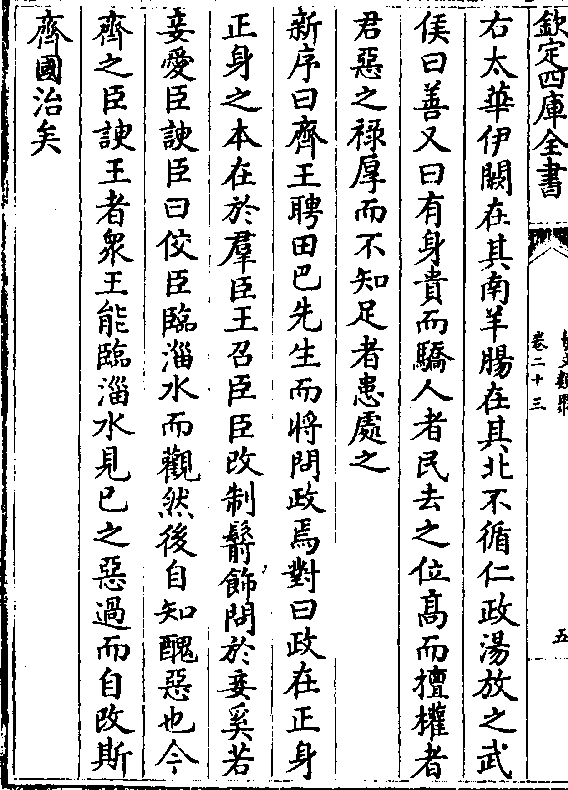 欽定四庫全書
藝文類聚
卷二十三
五
右太華伊闕在其南羊腸在其北不循仁政湯放之武
侯曰善又曰有身貴而驕人者民去之位髙而擅權者
君惡之禄厚而不知足者患處之
新序曰齊王聘田巴先生而將問政焉對曰政在正身
正身之本在於羣臣王召臣臣改制鬋飾問於妾奚若
妾愛臣諛臣曰佼臣臨淄水而觀然後自知醜惡也今
齊之臣諛王者衆王能臨淄水見已之惡過而自改斯
齊國治矣